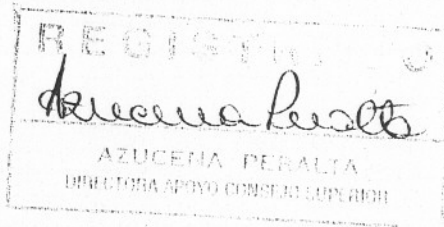 Azucena Peralta
AZUCENA PERALTA
DIRECTORA APOYO CONSEJO SUPERIOR